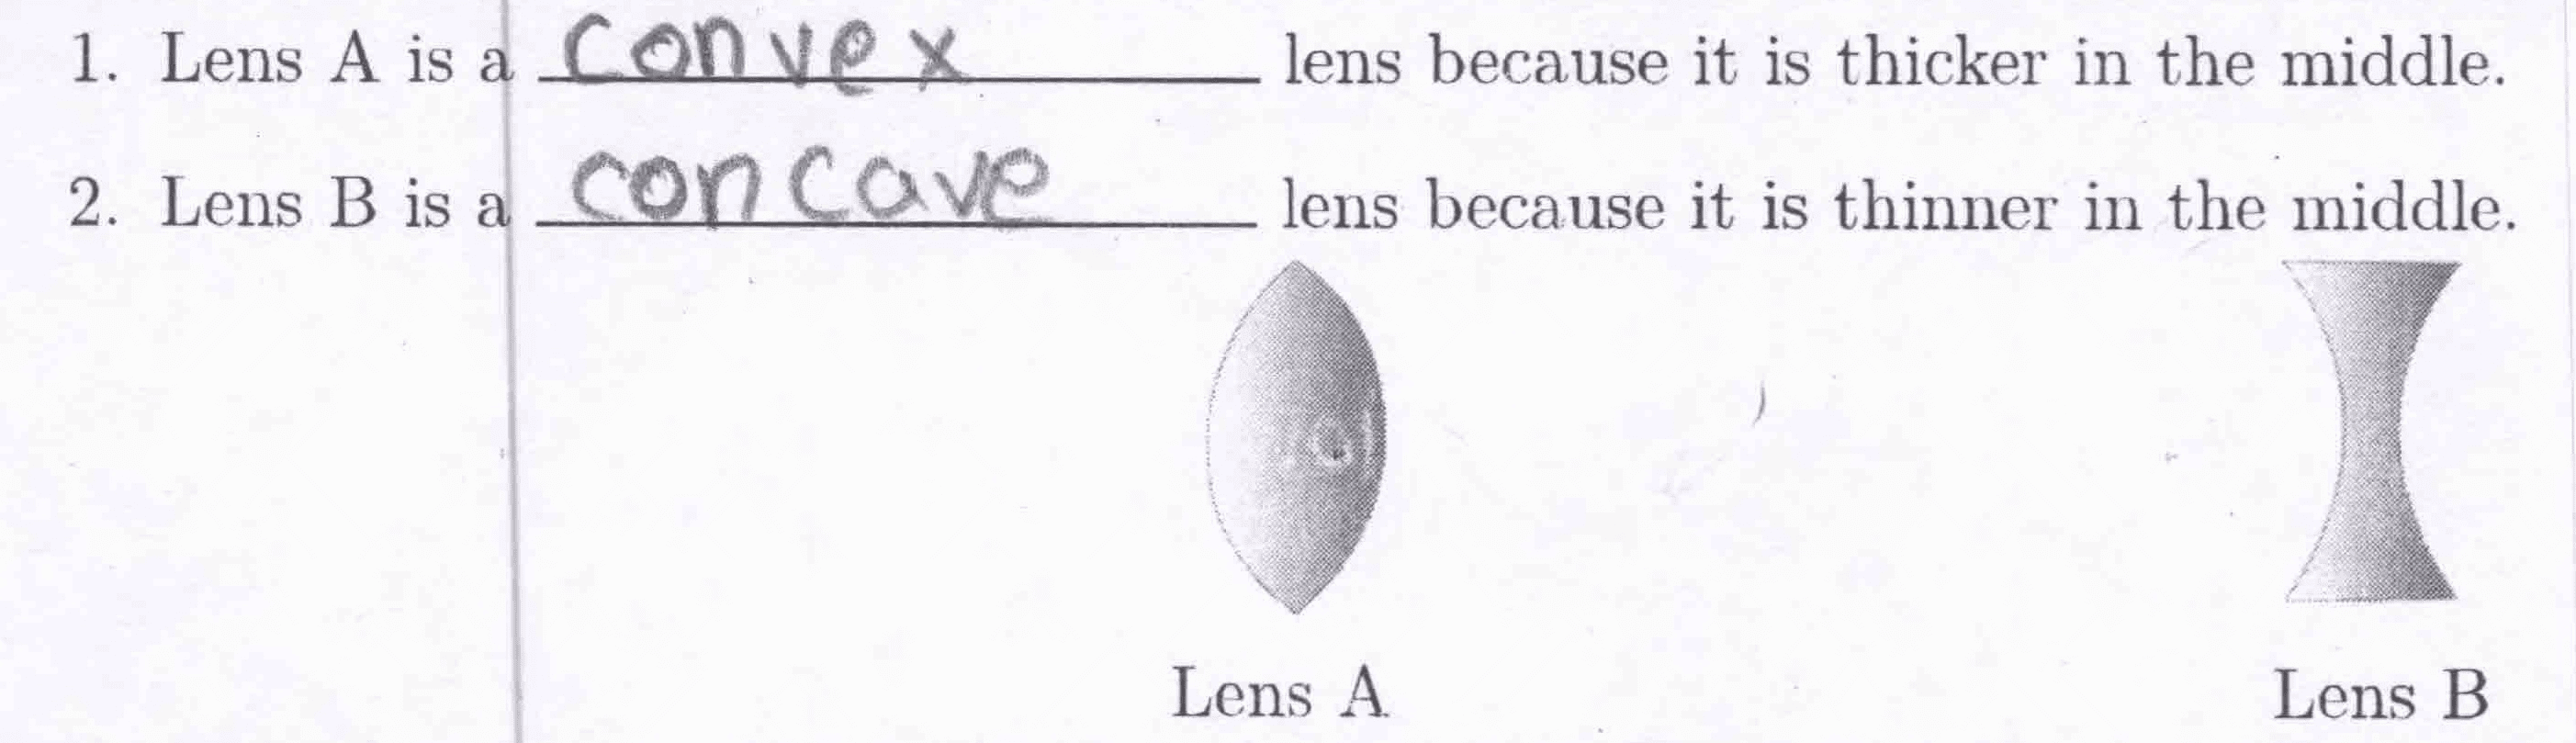 1. Lens A is a convex lens because it is thicker in the middle.
2. Lens B is a concave lens because it is thinner in the middle.
Lens A
Lens B